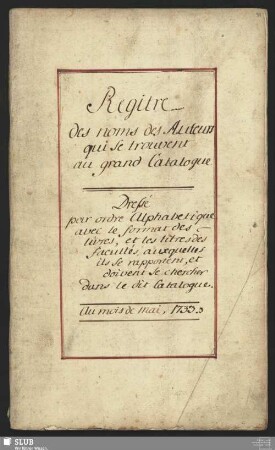 Regitre
des noms des Auteurs
qui se trouvent
au grand Catalogue
Dressé
par ordre Alphabetique
avec le format des
livres, et les titres des
facultés, auxquelles
ils se rapportent, et
doivent se chercher
dans le dit Catalogue.
Au mois de mai, 1733.
SLUB
Wir führen Wissen.